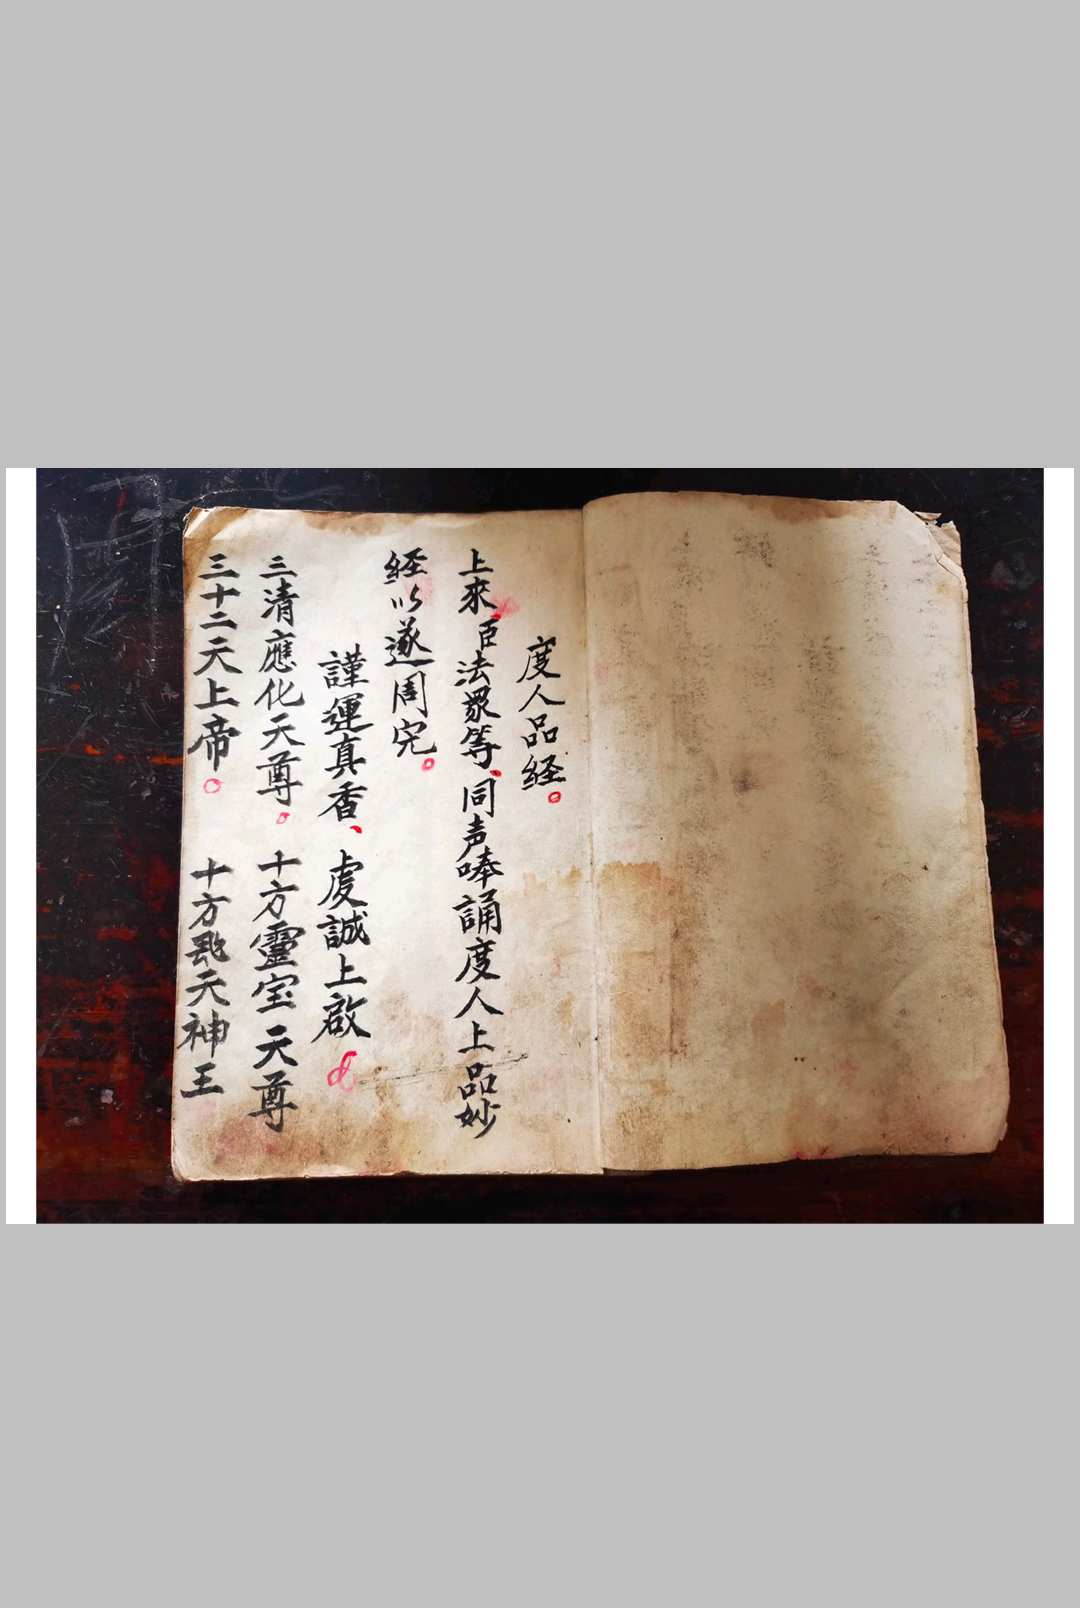 度人品経。
上來、臣法眾等、同声唪誦度人上品妙
経以遂周完。
謹運真香、虔誠上啟
三清應化天尊。十方靈宝天尊
三十二天上帝。十方天神王